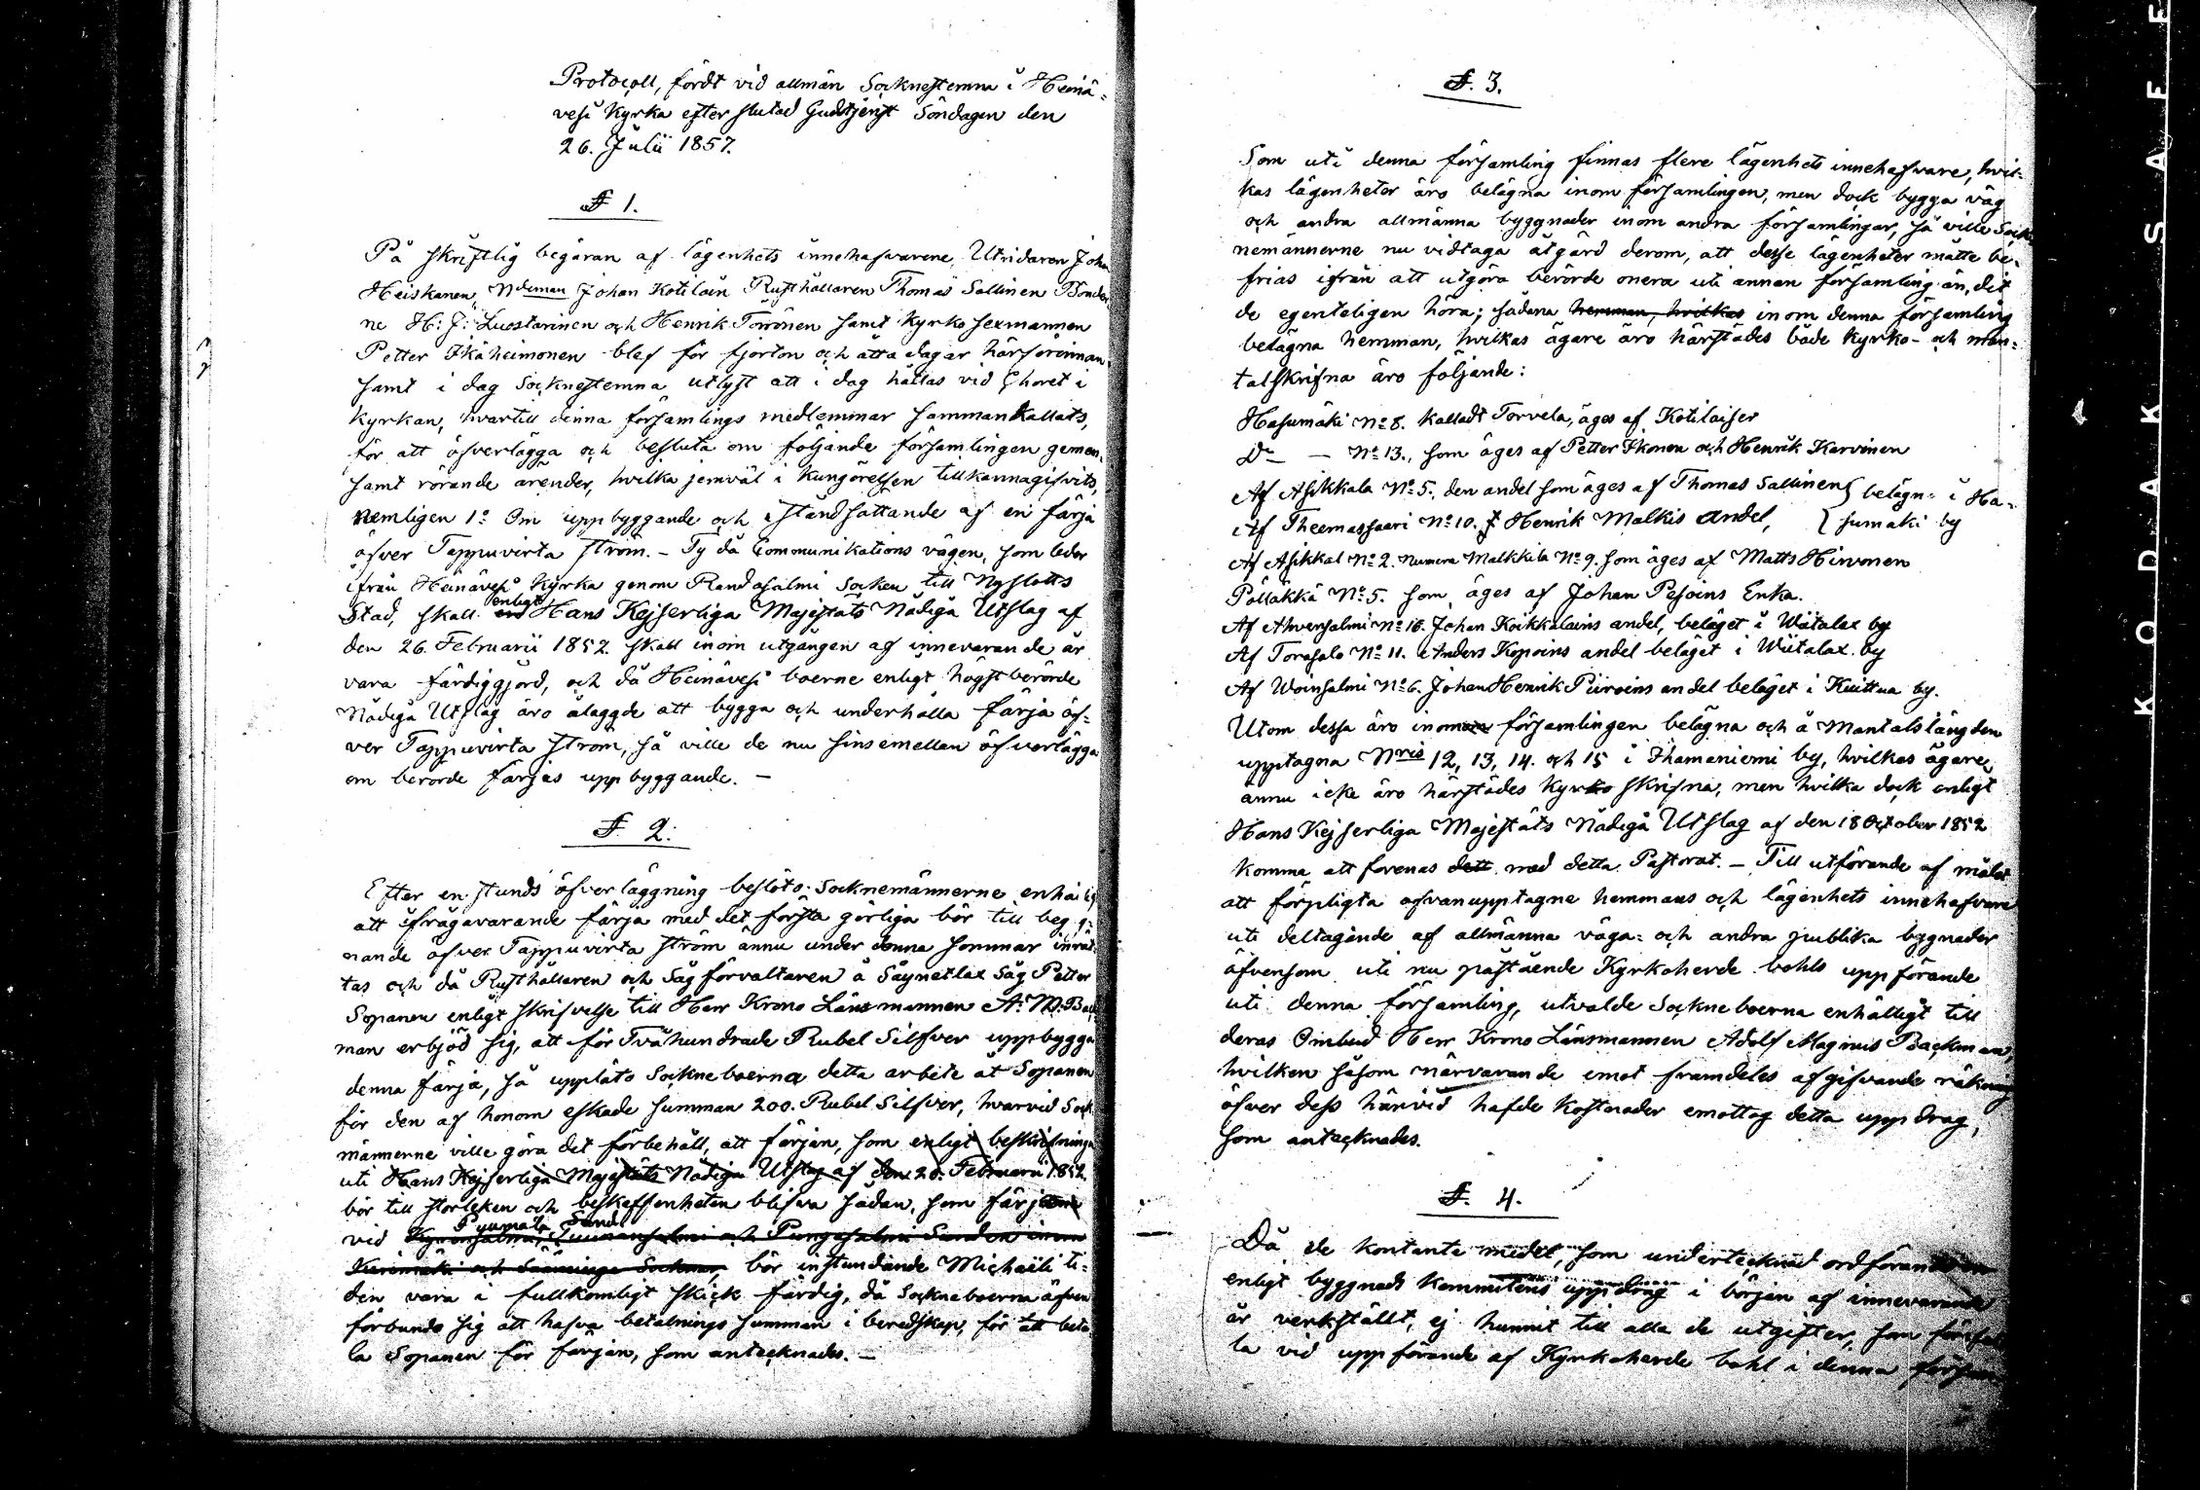 Protocoll, fördt vid allmän Socknestemna i Heinä-
vesi Kyrka efter slutad Gudstjenst Söndagen den
26. Julii 1857.
§ 1.
På skriftlig begäran af lägenhets innehafvarene, Utridaren Johan
Heiskanen, Ndeman Johan Kotilain Rusthållaren Thomas Sallinen Bönder
ne H: J: Luostarinen och Henrik Torrönen samt Kyrko sexmannen
Petter Ikäheimonen blef för fjorton och åtta dagar härförinnan
samt i dag Socknestemna utlyst att i dag hållas vid Choret i
kyrkan, hvartill denna församlings medlemmar sammankallats,
för att öfverlägga och besluta om följande församlingen gemen-
samt rörande ärender, hvilka jemväl i kungörelsen tillkännagifvits,
nemligen 1o Om uppbyggande och iståndsättande af en färja
öfver Tappuvirta ström. – Ty då Communikations vägen, som leder
ifrån Heinävesi Kyrka genom Randasalmi Socken till Nyslotts
Stad, skall enligt Hans Kejserliga Majestäts Nådiga Utslag af
den 26. Februarii 1852 skall inom utgången af innevarande år
vara färdiggjord, och då Heinävesi boerne enligt högstberörde
Nådiga Utslag äro ålaggde att bygga och underhålla färja öf-
ver Tappuvirta ström, så ville de nu sinsemellan öfverlägga
om berörde färjas uppbyggande. –
§ 2.
Efter en stunds öfverläggning beslöto Socknemännerne enhälligt
att ifrågavarande färja med det första görliga bör till beg
nande öfver Tappuvirta ström ännu under denna sommar inrät-
tas och då Rusthållaren och Sågförvaltaren å Säynetlax Såg Petter
Sopanen enligt skrifvelse till Herr Krono Länsmannen A. M. Back-
man erbjöd sig, att för Tvåhundrade Rubel Silfver uppbygga
denna färja, så uppläts Sockneboerna detta arbete åt Sopanen
för den af honom eskade summan 200. Rubel Silfver, hvarvid Sock
männerne ville göra det förbehåll, att färjan, som enligt beskrifningen
uti Hans Kejserliga Majestäts Nådiga Utslag af den 26. Februarii 1852
bör till storleken och beskeffenheten blifva sådan, som färjorne
vid Puumala Sund
bör instundande Michaëli ti-
den vara i fullkomligt skick färdig, då Sockneboerna äfven
förbundo sig att hafva betalnings summan i beredskap, för att beta-
la Sopanen för färjan, som antecknades. –
§. 3.
Som uti denna församling finnas flere lägenhets innehafvare, hvil-
kas lägenheter äro belägna inom församlingen, men dock bygga väg
och andra allmänna byggnader inom andra församlingar, så ville Sock-
nemännerne nu vidtaga åtgärd derom, att desse lägenheter måtte be-
frias ifrån att utgöra berörde onera uti annan församling än, dit
de egenteligen höra; sådana hemman, hvilkas inom denna församling
belägna hemman, hvilkas ägare äro härstädes både kyrko- och man-
talskrifna äro följande:
Hasumäki No 8. kalladt Torvela, äges af Kotilaiser
Do – No 13., som äges af Petter Ikonen och Henrik Karvinen
Af Asikkala No 5. den andel som äges af Thomas Sallinen { belägn: i Ha-
Af Theemassaari No 10. Henrik Malkis andel, { sumäki by
Af Asikkal No 2. numera Malkkila No 9. som äges af Matts Hirvonen
Pölläkkä No 5. som äges af Johan Pesoins Enka.
Af Ahvensalmi No 16. Johan Koikkalains andel, beläget i Wiitalax by
Af Torasalo No 11. Anders Koponens andel beläget i Wiitalax by
Af Woinsalmi No 6. Johan Henrik Piiroins andel beläget i Kuittua by.
Utom dessa äro inom församlingen belägna och å Mantalslängden
upptagna Nris 12, 13, 14. och 15 i Ihamaniemi by, hvilkas ägare
ännu icke äro härstädes kyrko skrifna, men hvilka dock enligt
Hans Kejserliga Majestäts Nådiga Utslag af den 18 October 1852
komma att forenas dett med detta Pastorat. – Till utförande af målet
att förpligta ofvanupptagne hemmans och lägenhets innehafvare
uti deltagande af allmänna väga- och andra publika bygnader
äfvensom uti nu påstående Kyrkoherde bohls uppförande
uti denna församling, utvalde Sockneboerna enhälligt till
deras Ombud Herr Krono Länsmannen Adolf Magnus Backman,
hvilken såsom närvarande emot framdeles afgifvande räkning
öfver dess härvid hafde kostnader emottog detta uppdrag,
som antecknades.
§. 4.
Då de kontanta medel, som undertecknad ordförande
enligt byggnads kommitens uppdrag i början af innevarande
år verkställt, ej hunnit till alla de utgifter, som förefal
la vid uppförande af Kyrkoherde bohl i denna försam
KODAK SAFE